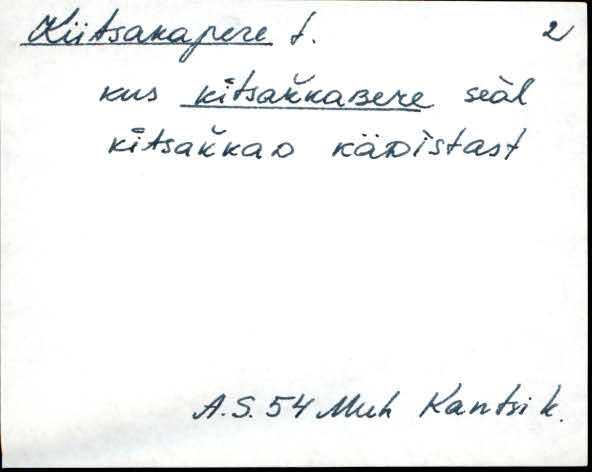 Kiitsakapere t. 2
kus kĭtsak̆kaʙere seàl
kĭtsak̆kaᴅ käᴅìstast
A.S. 54 Muh Kantsi k.